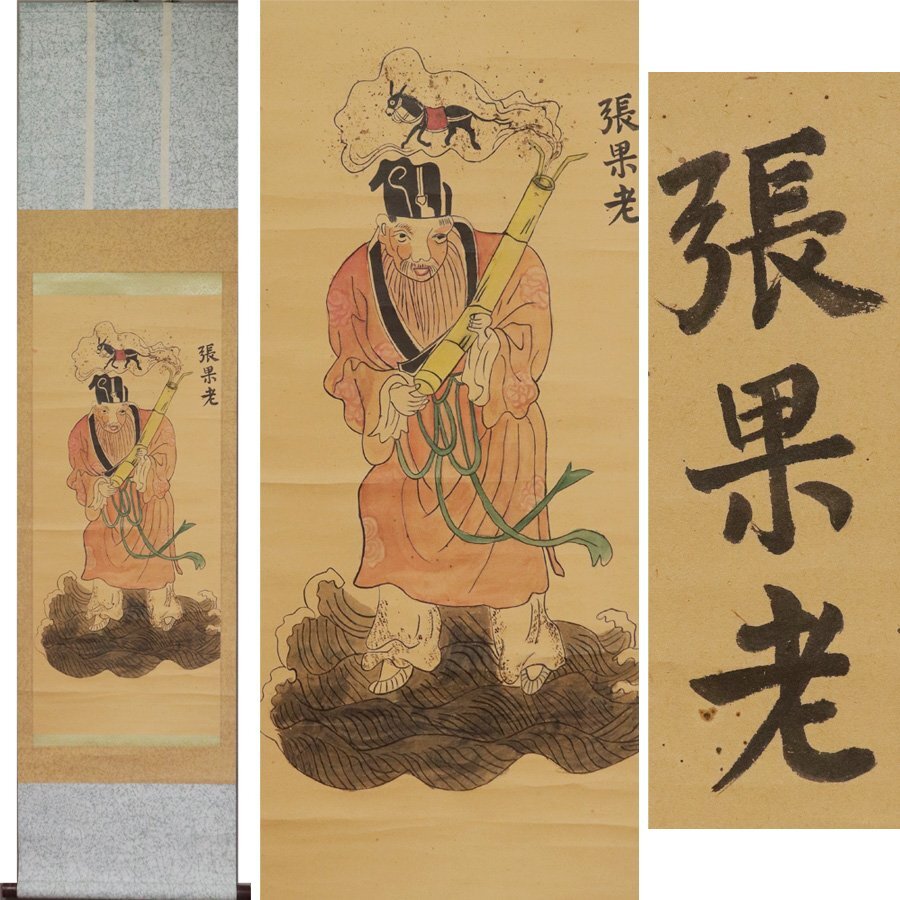 張果老
張果老
張果老